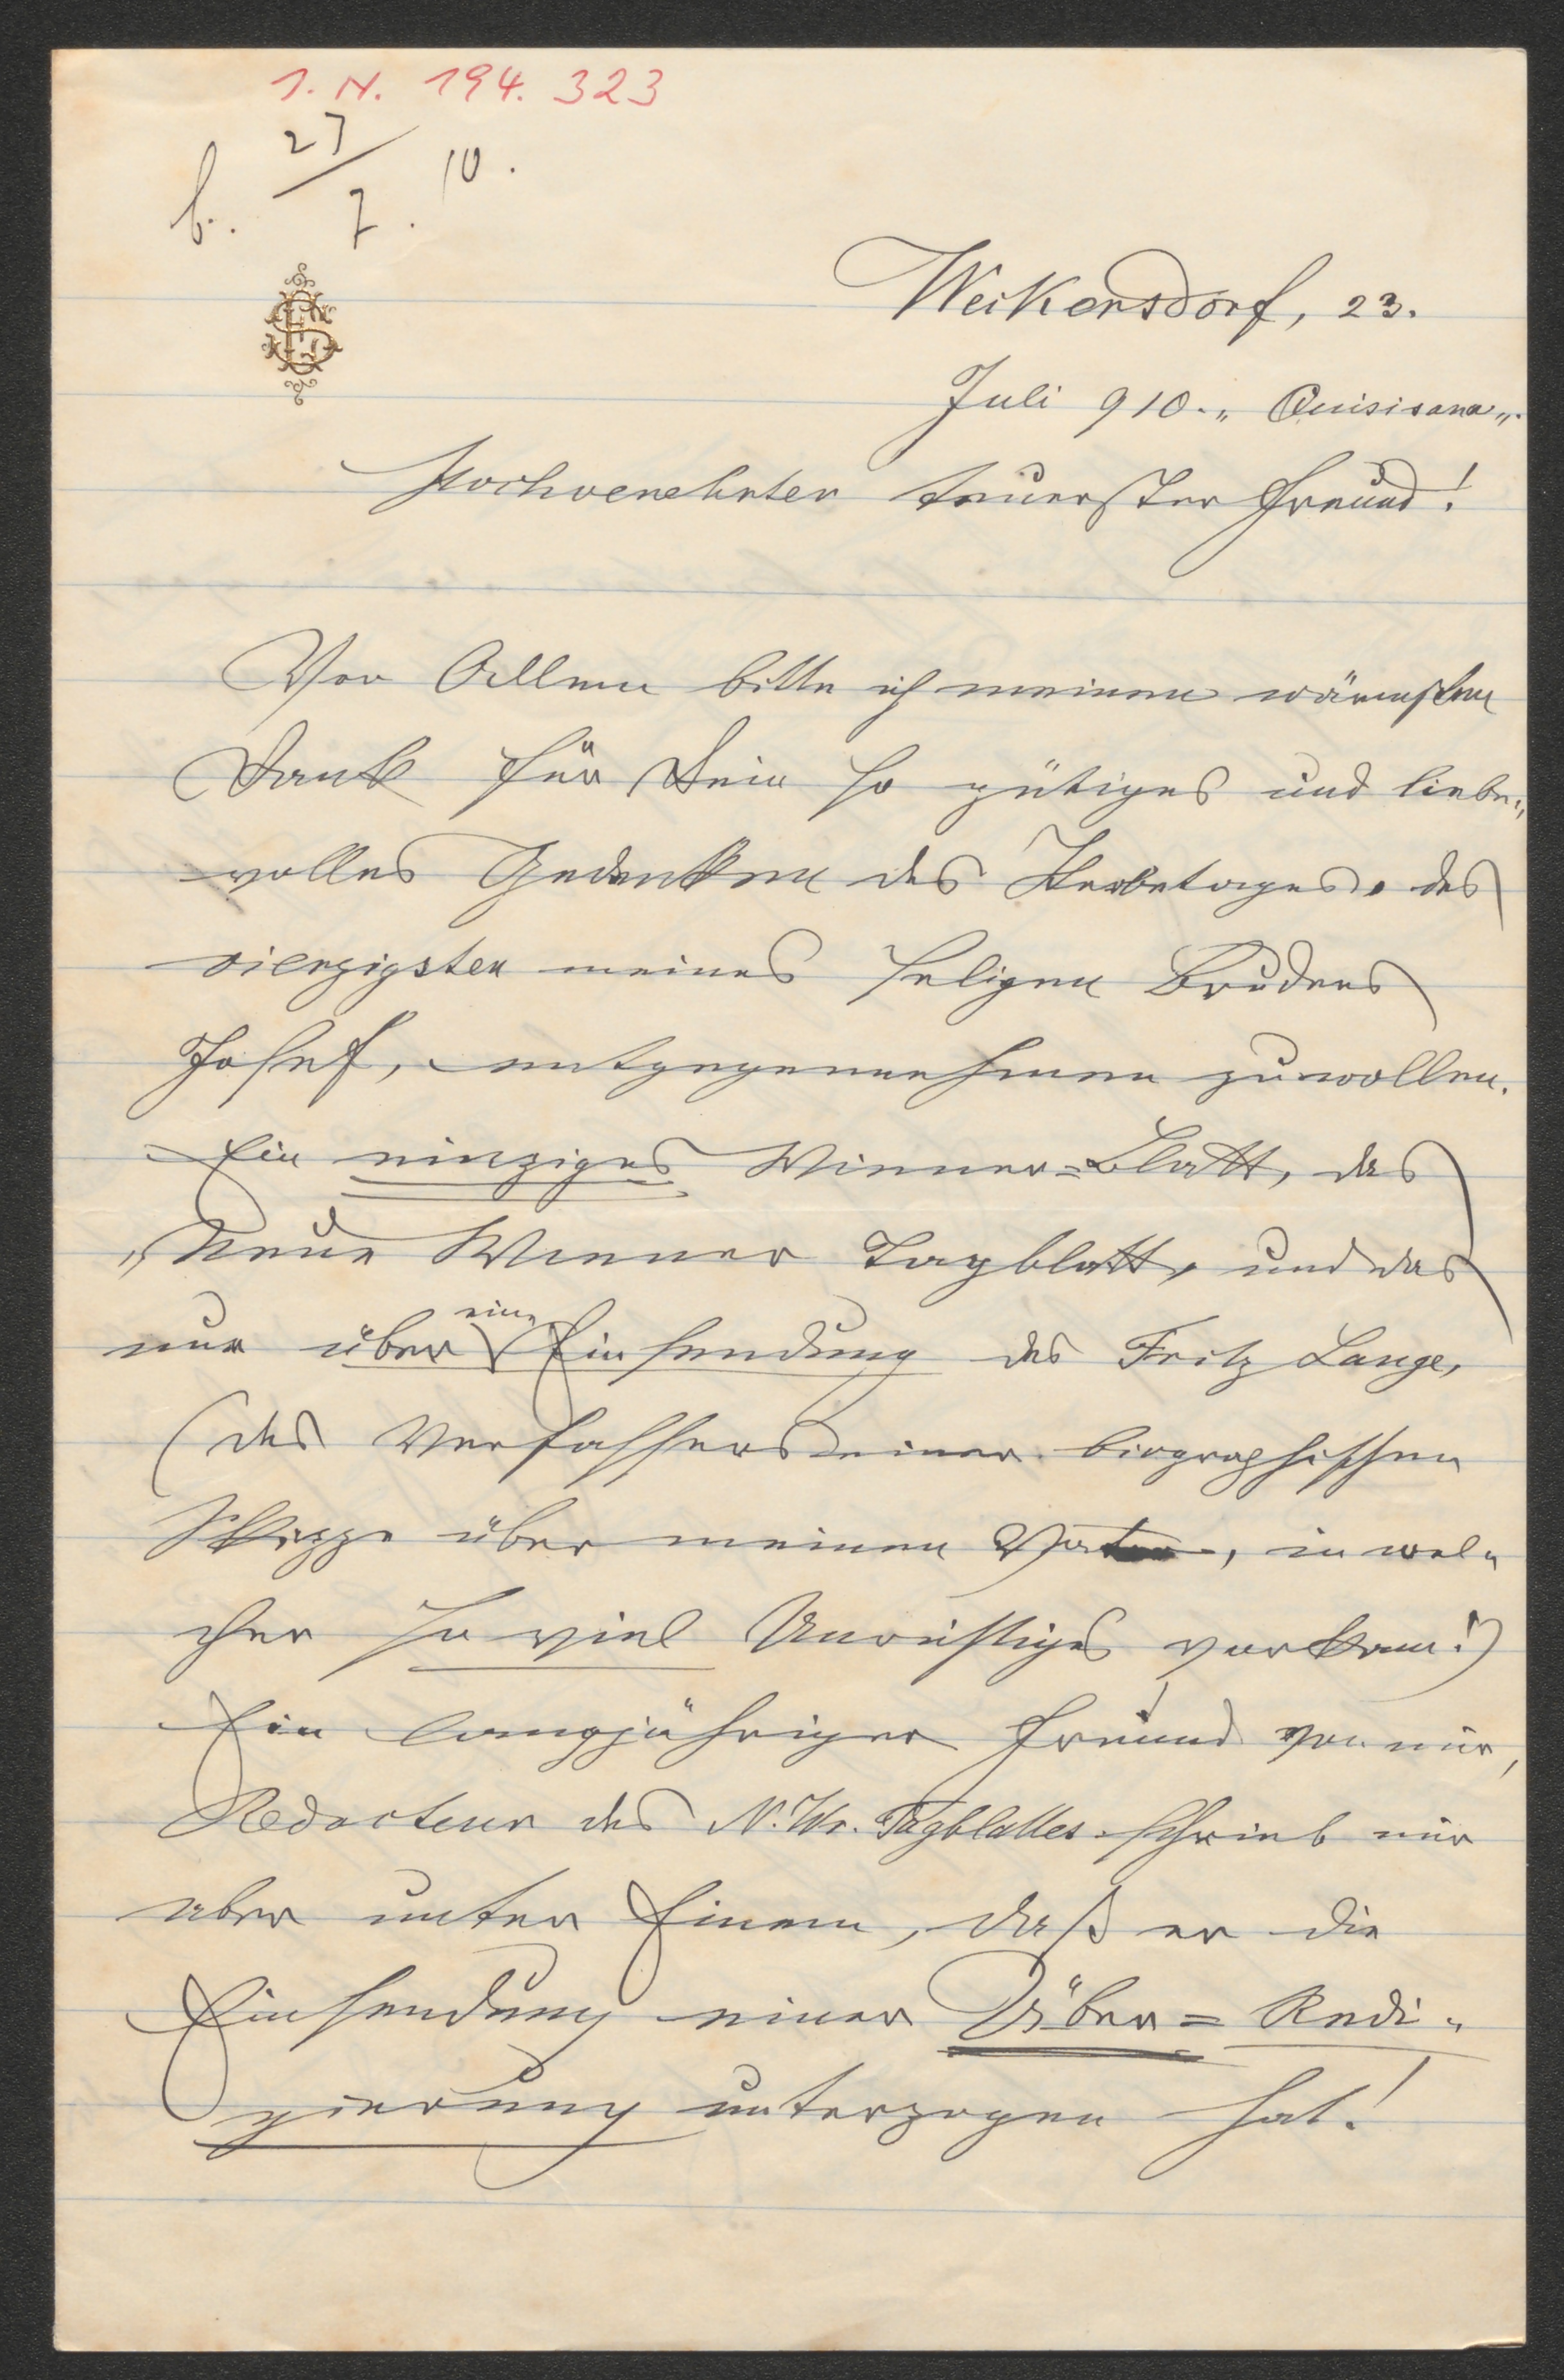 I. N. 194.323
b. 27/7. 10.
Weikersdorf, 23.
Juli 910. „Quisisana„.
Hochverehrter teuerster Freund!
Vor Allem bitte ich meinen wärmsten
Dank für Dein so gütiges und liebe„
volles Gedenken des Sterbetages, des
vierzigsten meines seligen Bruders
Josef, entgegennehmen zu wollen.
Ein einziges Wiener=Blatt, das
„Neue Wiener Tagblatt, und das
nur über eine Einsendung des Fritz Lange,
(des Verfassers einer biographischen
Skizze über meinen Vater, in wel„
cher so viel Unrichtiges vorkam!)
Ein langjähriger Freund von mir,
Redacteur des N. Wr. Tagblattes schrieb mir
aber unter Einem, daß er die
Einsendung einer Über=Redi„
gierung unterzogen hat!